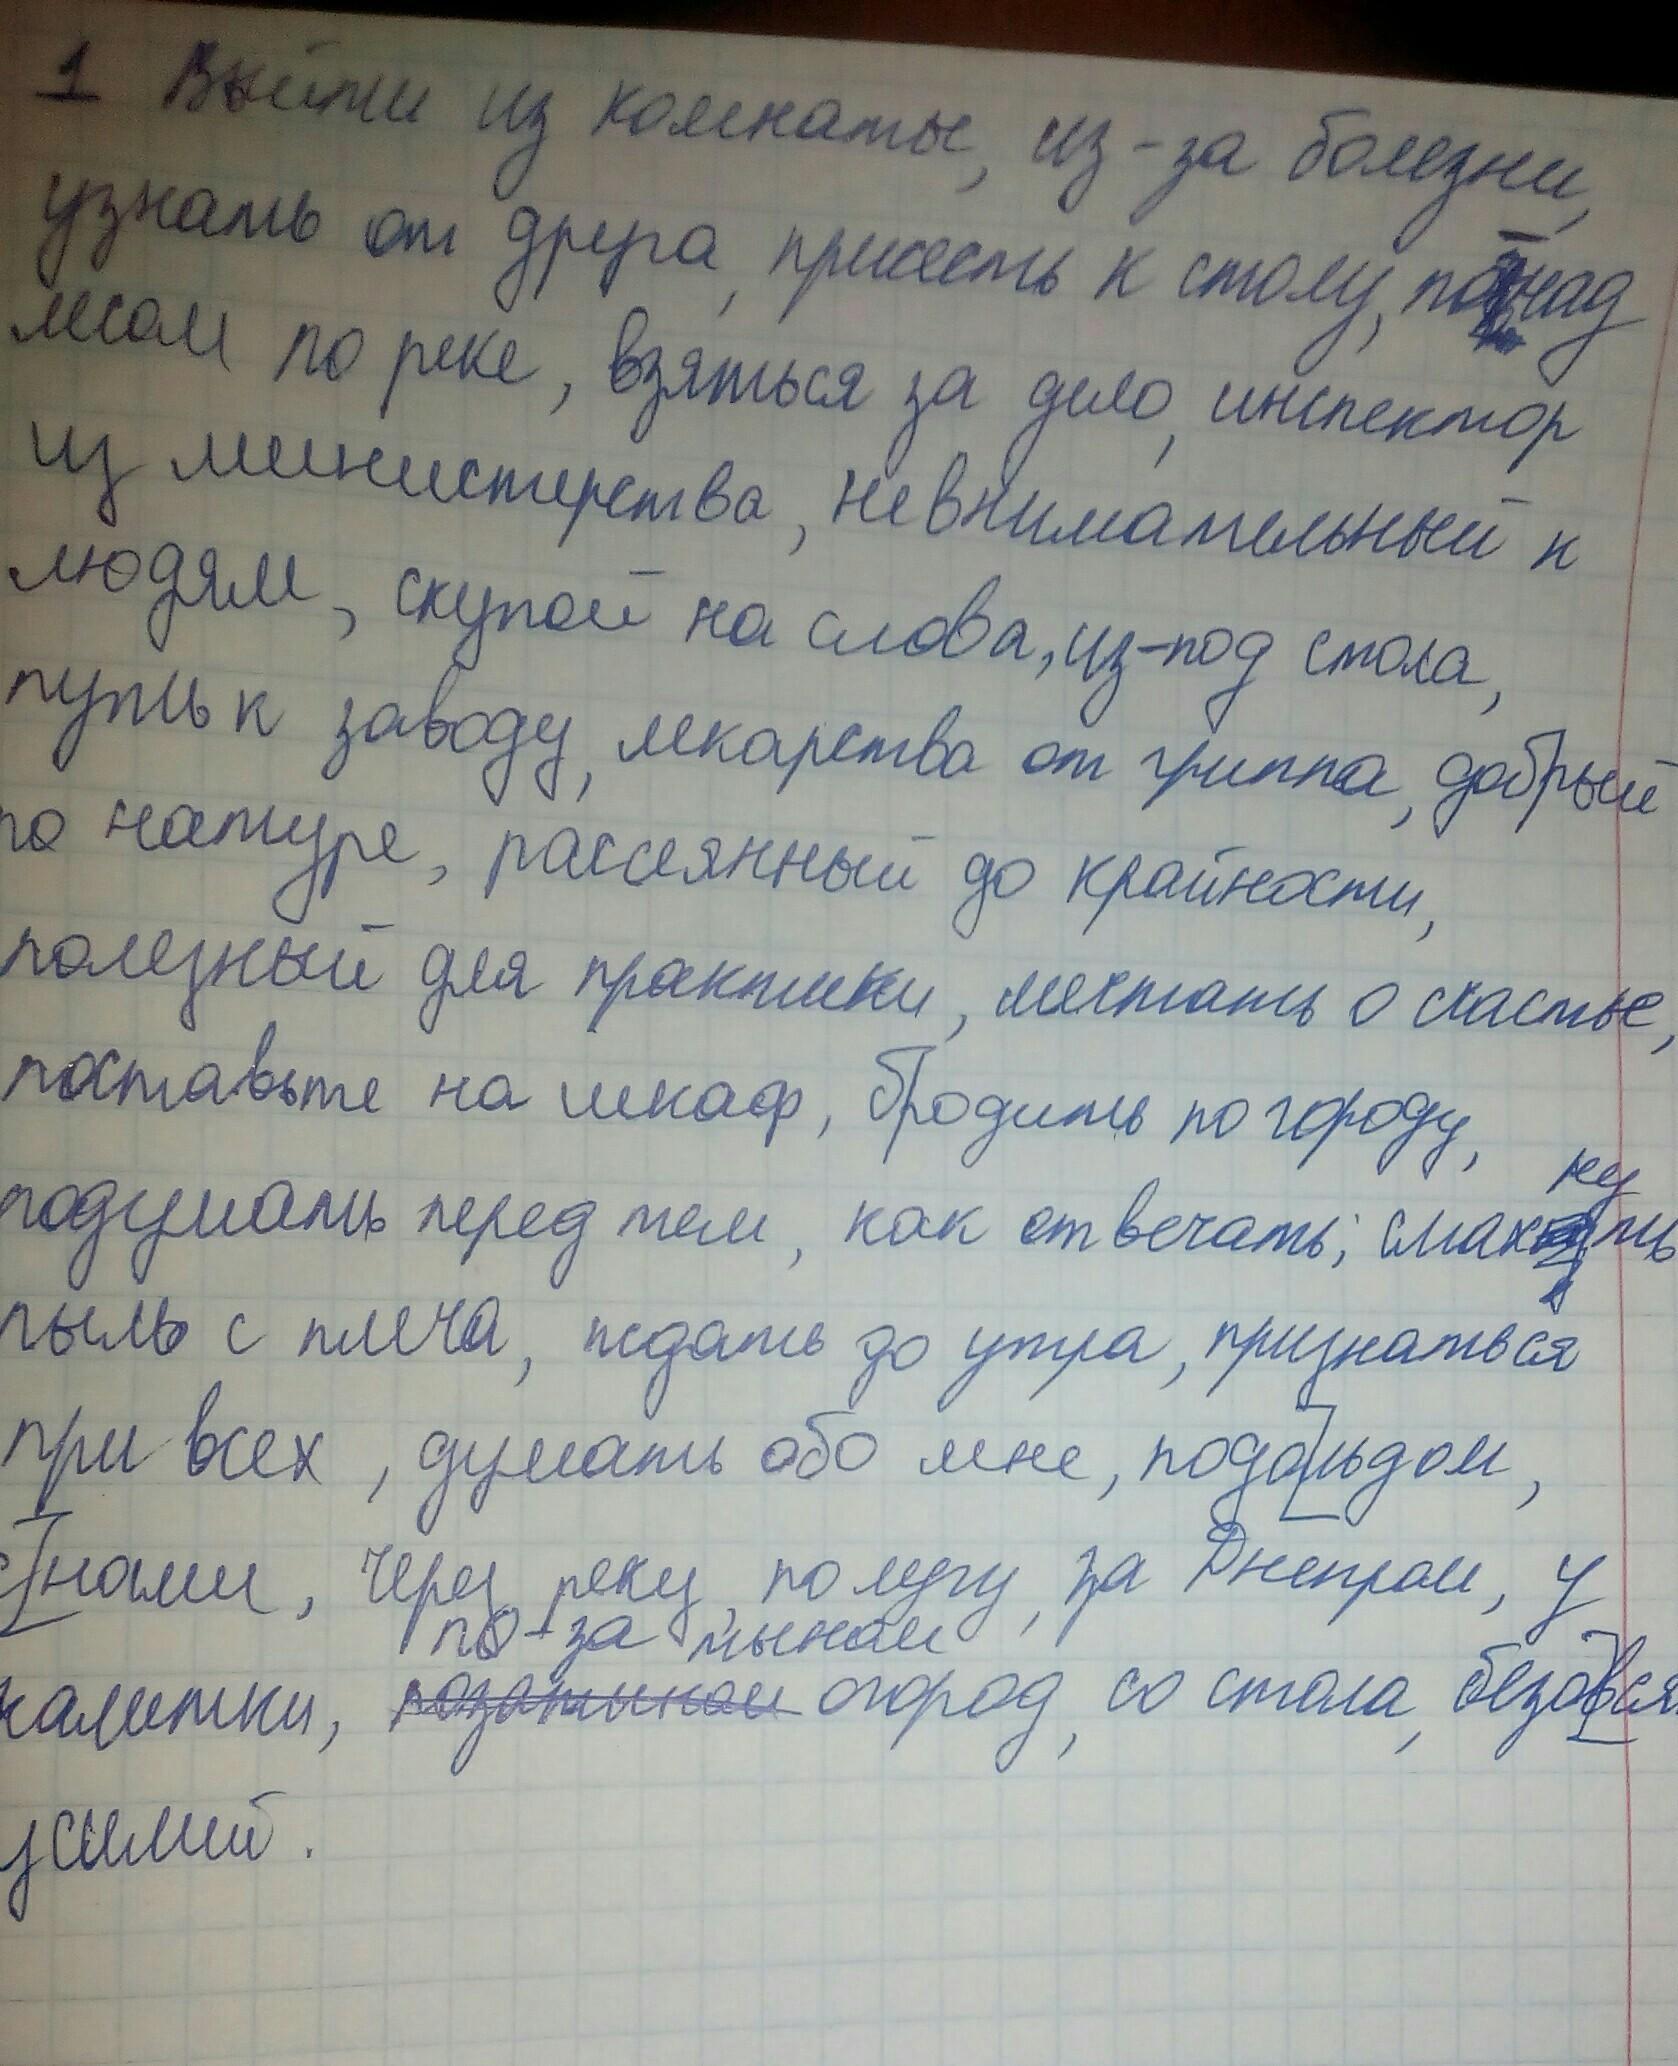 1 Выйти из комнаты, из-за болезни,
узнать от друга, присесть к столу, по над
лесом по реке, взяться за дело, инспектор
из министерства, невнимательный к
людям, скупой на слова, из-под стола,
путь к заводу, лекарства от гриппа, добрый
по натуре, рассеянный до крайности,
полезный для практики, мечтать о счастье,
поставьте на шкаф, бродить по городу,
подумать перед тем, как отвечать; смахнуть
пыль с плеча, ждать до утра, признаться
при всех, думать обо мне, подо льдом,
с нами, через реку, по лугу, за Днепром, у
по-за тыном
калитки, позатыном огород, со стола, безо вся
усилий.